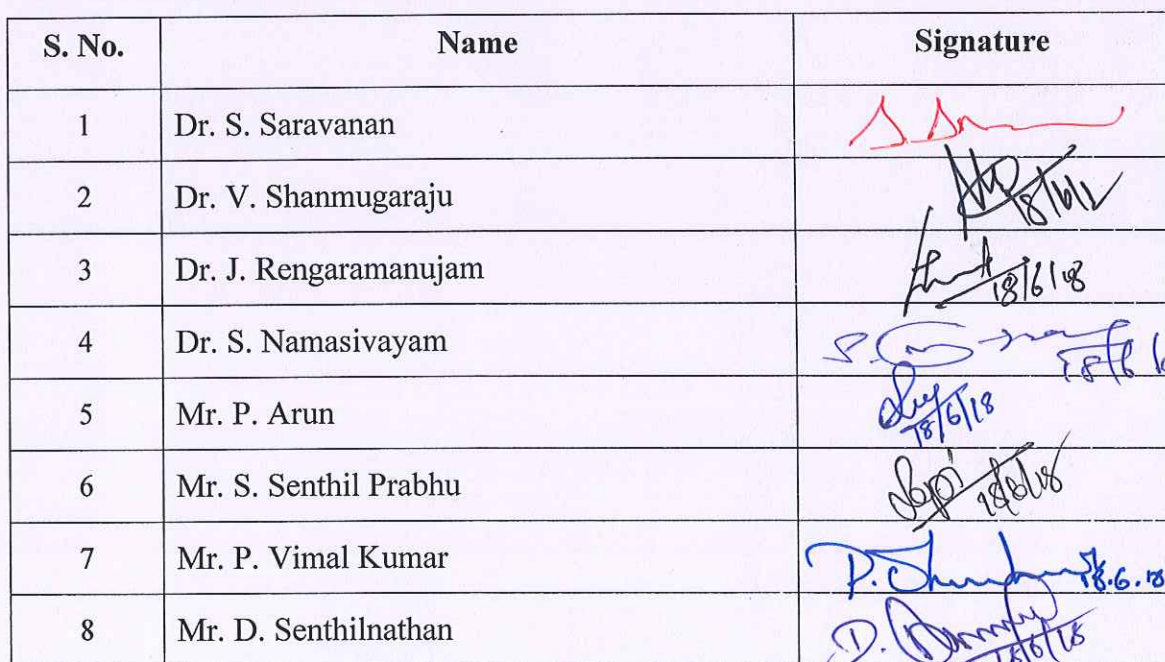 S. No. Name Signature
1 Dr. S. Saravanan
2 Dr. V. Shanmugaraju
3 Dr. J. Rengaramanujam 18/6/18
4 Dr. S. Namasivayam
5 Mr. P. Arun 18/6/18
6 Mr. S. Senthil Prabhu
7 Mr. P. Vimal Kumar 18.6.18
8 Mr. D. Senthilnathan 18/6/18